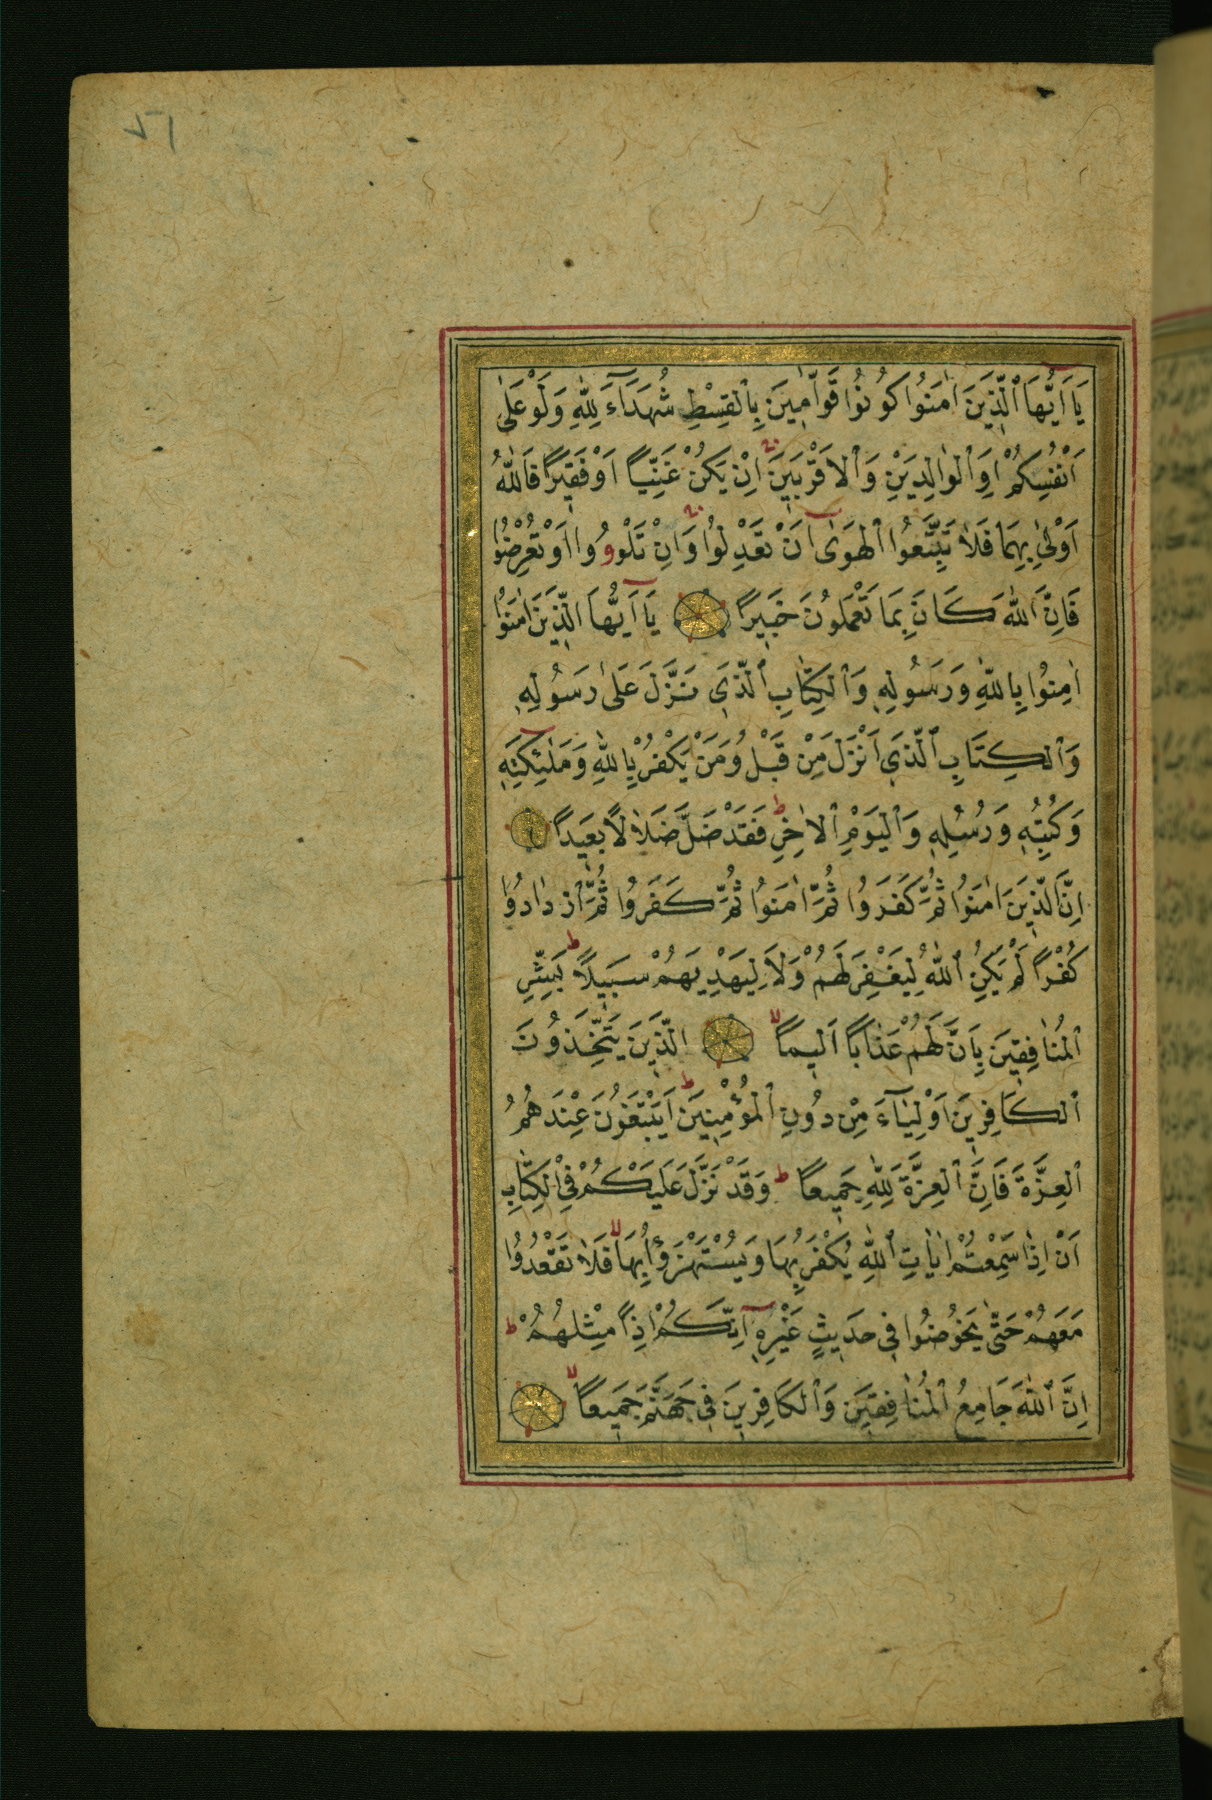 ٧٦
يَآ اَيُّهَا ٱلَّذِينَ اٰمَنُوا كُونُوا قَوَّامِينَ بِٱلْقِسْطِ شُهَدَآءَ لِلّٰهِ وَلَوْ عَلٰى
اَنْفُسِكُمْ اَوِ ٱلْوَالِدَيْنِ وَٱلْاَقْرَبِينَ اِنْ يَكُنْ غَنِيًّا اَوْ فَقِيرًا فَاللّٰهُ
اَوْلٰى بِهِمَا فَلَا تَتَّبِعُوا ٱلْهَوٰى اَنْ تَعْدِلُوا وَاِنْ تَلْوُوا اَوْ تُعْرِضُوا
فَاِنَّ ٱللّٰهَ كَانَ بِمَا تَعْمَلُونَ خَبِيرًا يَآ اَيُّهَا الَّذِينَ اٰمَنُوا
اٰمِنُوا بِاللّٰهِ وَرَسُولِهٖ وَٱلْكِتَابِ ٱلَّذِى نَزَّلَ عَلٰى رَسُولِهٖ
وَٱلْكِتَابِ ٱلَّذِى اَنْزَلَ مِنْ قَبْلُ وَمَنْ يَكْفُرْ بِاللّٰهِ وَمَلٰٓئِكَتِهٖ
وَكُتُبِهٖ وَرُسُلِهٖ وَٱلْيَوْمِ ٱلْاٰخِرِ ط فَقَدْ ضَلَّ ضَلَالًا بَعِيدًا
اِنَّ الَّذِينَ اٰمَنُوا ثُمَّ كَفَرُوا ثُمَّ اٰمَنُوا ثُمَّ كَفَرُوا ثُمَّ ٱزْدَادُوا
كُفْرًا لَمْ يَكُنِ ٱللّٰهُ لِيَغْفِرَ لَهُمْ وَلَا لِيَهْدِيَهُمْ سَبِيلًا ط بَشِّرِ
ٱلْمُنَافِقِينَ بِاَنَّ لَهُمْ عَذَابًا اَلِيمًا لا الَّذِينَ يَتَّخِذُونَ
ٱلْكَافِرِينَ اَوْلِيَآءَ مِنْ دُونِ ٱلْمُؤْمِنِينَ ط اَيَبْتَغُونَ عِنْدَهُمُ
ٱلْعِزَّةَ فَاِنَّ ٱلْعِزَّةَ لِلّٰهِ جَمِيعًا ط وَقَدْ نَزَّلَ عَلَيْكُمْ فِى ٱلْكِتَابِ
اَنْ اِذَا سَمِعْتُمْ اٰيَاتِ ٱللّٰهِ يُكْفَرُ بِهَا وَيُسْتَهْزَؤُا بِهَا لا فَلَا تَقْعُدُوا
مَعَهُمْ حَتّٰى يَخُوضُوا فِى حَدِيثٍ غَيْرِهٖٓ اِنَّكُمْ اِذًا مِثْلُهُمْ ط
اِنَّ ٱللّٰهَ جَامِعُ ٱلْمُنَافِقِينَ وَٱلْكَافِرِينَ فِى جَهَنَّمَ جَمِيعًا لا